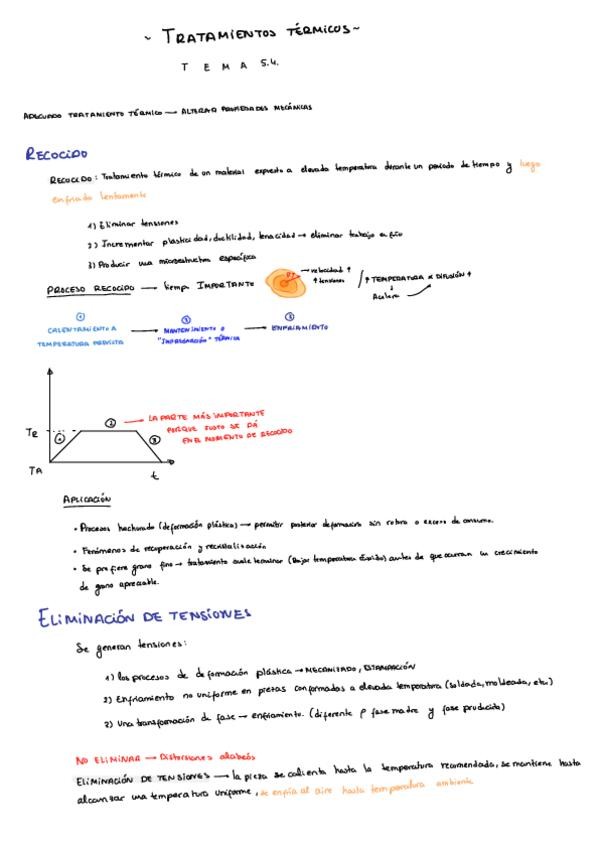 ~ TRATAMIENTOS TÉRMICOS ~
TEMA 5.4.
ADECUADO TRATAMIENTO TÉRMICO → ALTERAR PROPIEDADES MECÁNICAS
RECOCIDO
RECOCIDO: Tratamiento térmico de un material expuesto a elevada temperatura durante un periodo de tiempo y luego
enfriado lentamente
1) Eliminar tensiones
2) Incrementar plasticidad, ductilidad, tenacidad → eliminar trabajo en frío
3) Producir una microestructura específica
PROCESO RECOCIDO → tiempo IMPORTANTE
→ velocidad ↑
↑ tensiones
↑ TEMPERATURA ∝ DIFUSIÓN ↑
Acelera
① ② ③
CALENTAMIENTO A → MANTENIMIENTO O → ENFRIAMIENTO
TEMPERATURA PREVISTA "IMPREGNACIÓN" TÉRMICA
② → LA PARTE MÁS IMPORTANTE
PORQUE JUSTO SE DÁ
EN EL MOMENTO DE RECOCIDO
TR ① ③
TA t
APLICACIÓN
• Procesos hechurado (deformación plástica) → permitir posterior deformación sin rotura o exceso de consumo.
• Fenómenos de recuperación y recristalización
• Se prefiere grano fino → tratamiento suele terminar (Bajar temperatura Exigido) antes de que ocurran un crecimiento
de grano apreciable.
ELIMINACIÓN DE TENSIONES
Se generan tensiones:
1) los procesos de deformación plástica → MECANIZADO, ESTAMPACIÓN
2) Enfriamiento no uniforme en piezas conformadas a elevada temperatura (soldada, moldeada, etc)
3) Una transformación de fase → enfriamiento. (diferente ρ fase madre y fase producida)
NO ELIMINAR → Distorsiones alabeós
ELIMINACIÓN DE TENSIONES → la pieza se calienta hasta la temperatura recomendada, se mantiene hasta
alcanzar una temperatura uniforme, se enfría al aire hasta temperatura ambiente